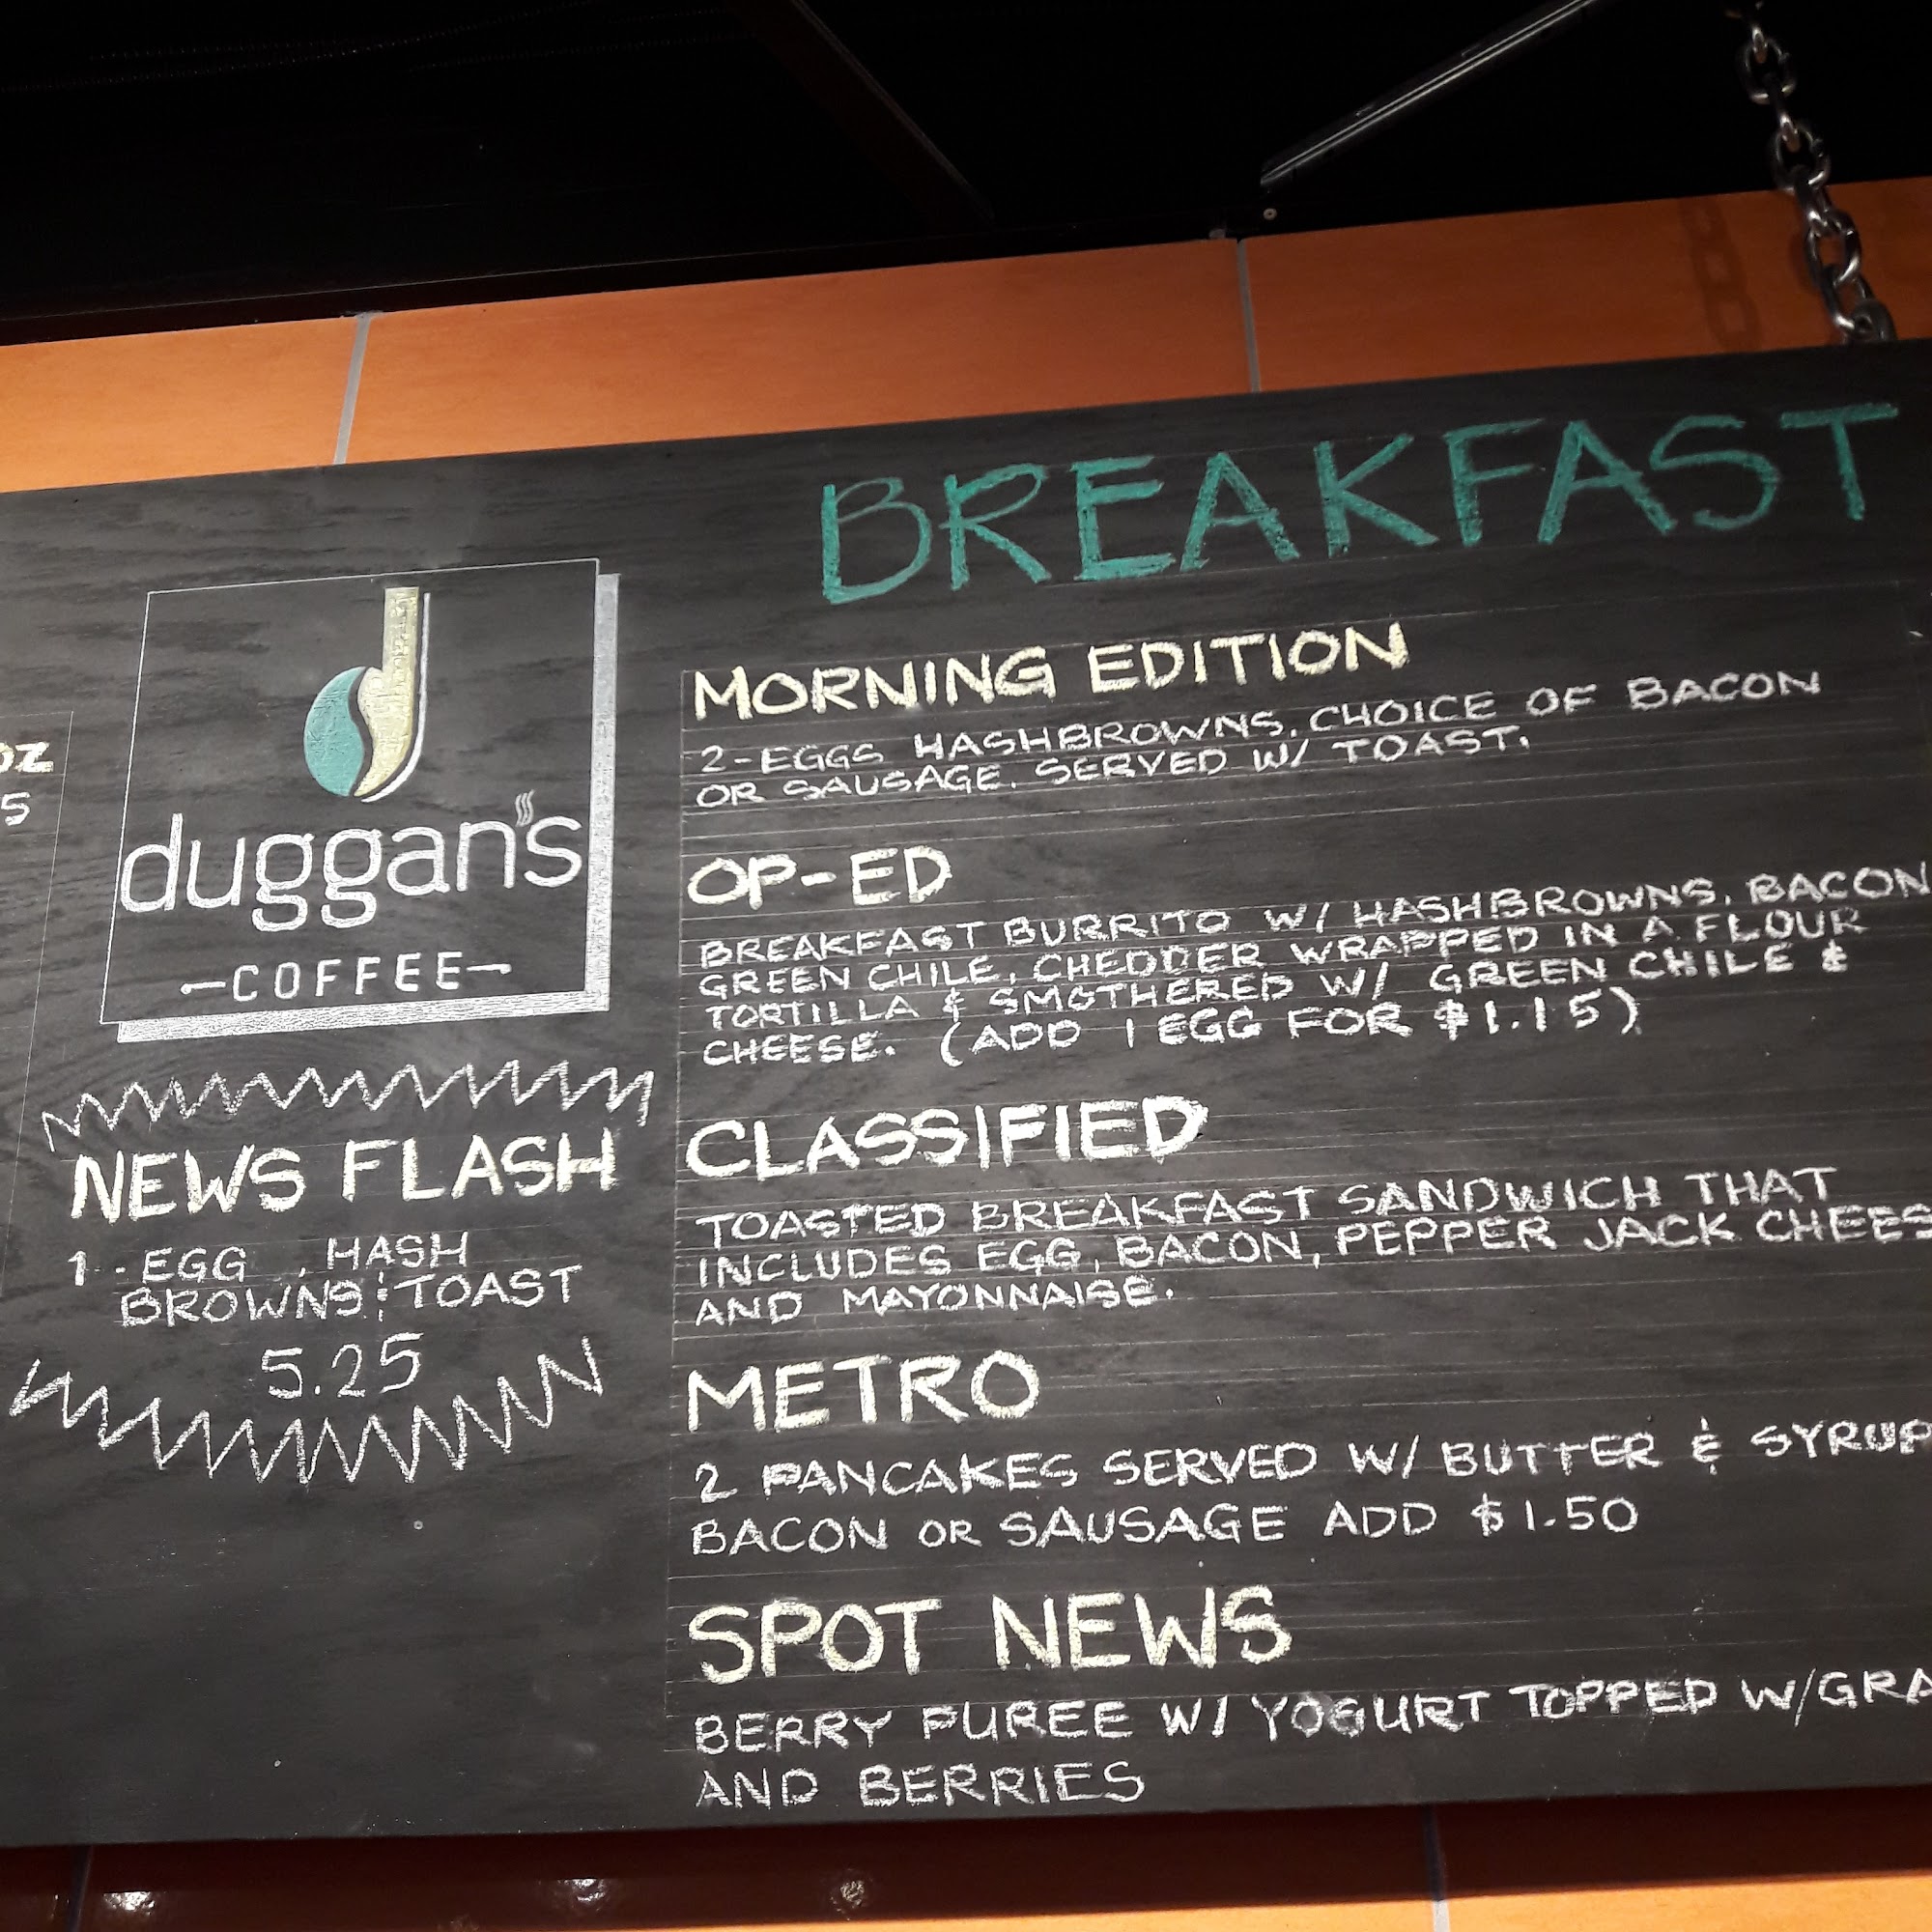 OZ
5
duggan's
COFFEE
NEWS FLASH
1 - EGG , HASH
BROWNS & TOAST
5.25
BREAKFAST
MORNING EDITION
2-EGGS HASHBROWNS, CHOICE OF BACON
OR SAUSAGE. SERVED W/ TOAST.
OP-ED
BREAKFAST BURRITO W/ HASHBROWNS, BACON
GREEN CHILE, CHEDDER WRAPPED IN A FLOUR
TORTILLA & SMOTHERED W/ GREEN CHILE &
CHEESE. (ADD 1 EGG FOR $1.15)
CLASSIFIED
TOASTED BREAKFAST SANDWICH THAT
INCLUDES EGG, BACON, PEPPER JACK CHEES
AND MAYONNAISE.
METRO
2 PANCAKES SERVED W/ BUTTER & SYRUP
BACON OR SAUSAGE ADD $1.50
SPOT NEWS
BERRY PUREE W/ YOGURT TOPPED W/GRA
AND BERRIES